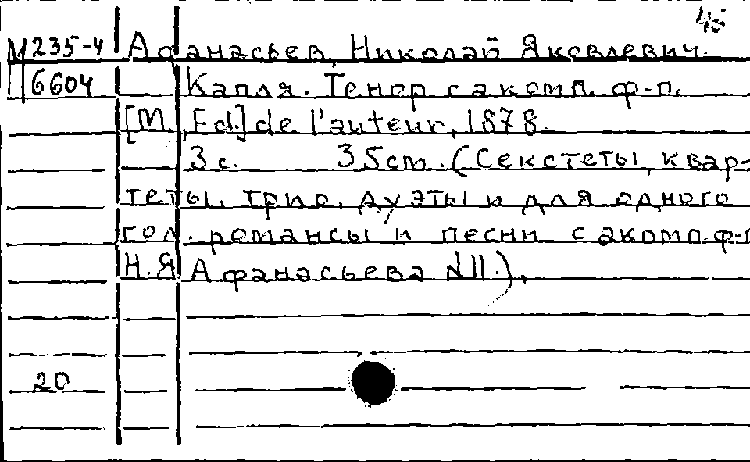 45
М235-4 Афанасьев, Николай Яковлевич.
П6604 Капля. Тенор с акомп. ф-п.
[М., Ed.] de l'auteur, 1878.
3 с. 35cm. (Секстеты, квар-
теты, трио, дуэты и для одного
гол. романсы и песни с акомп. ф-п
Н.Я Афанасьева №11.).
20